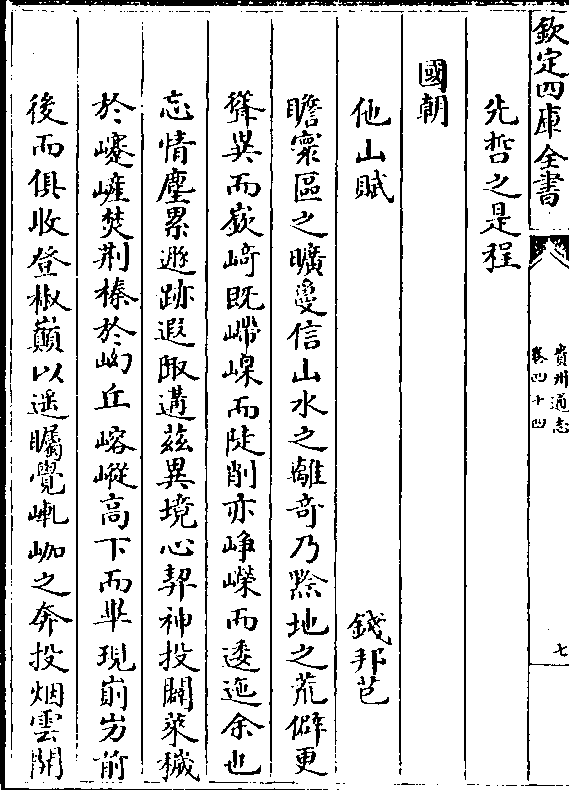 欽定四庫全書
貴州通志
卷四十四
七
先哲之是程
國朝
他山賦 錢邦芑
瞻寰區之曠夐信山水之離奇乃黔地之荒僻更
聳異而嶔崎既嵽嵲而陡削亦崢嶸而逶迤余也
忘情塵累遯跡遐陬遘茲異境心契神投闢萊穢
於巉嵼焚荆榛於㘭丘嵱嵷高下而畢現前㟁前
後而俱收登椒巔以遥矚覺㠆峫之奔投烟雲開